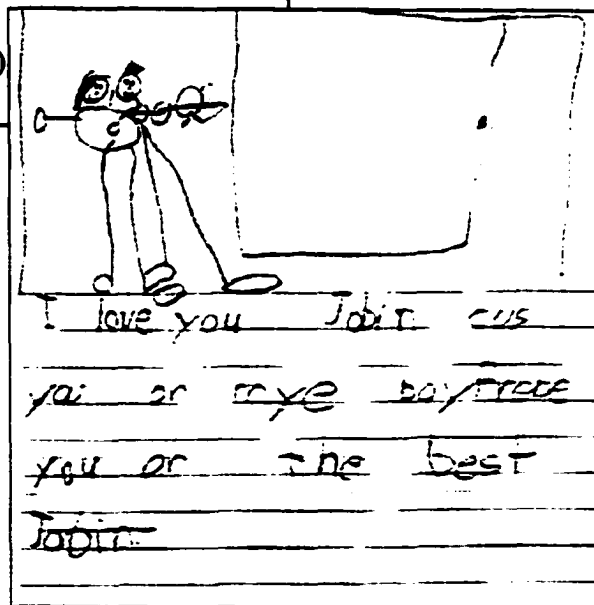 I love you Jobin cus
yoi or mye boyfrede
you or the best
Jobin